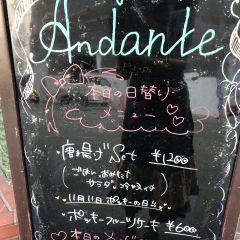 Andante
本日の日替り
メニュー
唐揚げSet ¥1200
ごはん、おみそ汁
サラダ、
11月11日 ポッキーの日
ポッキーフルーツケーキ ¥600
本日の